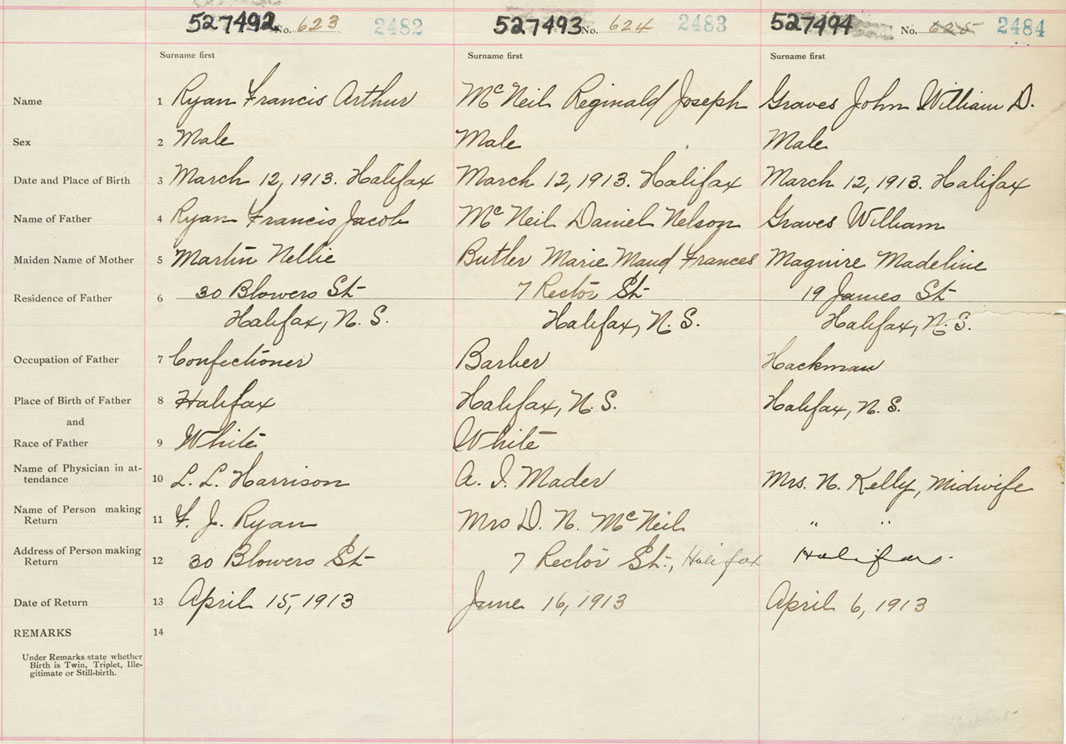 527492 No. 623 2482 527493 No. 624 2483 527494 No. 625 2484
Surname first Surname first Surname first
Name 1 Ryan Francis Arthur McNeil Reginald Joseph Graves John William D.
Sex 2 Male Male Male
Date and Place of Birth 3 March 12, 1913. Halifax March 12, 1913. Halifax March 12, 1913. Halifax
Name of Father 4 Ryan Francis Jacob McNeil Daniel Nelson Graves William
Maiden Name of Mother 5 Martin Nellie Butler Marie Maud Frances Maguire Madeline
Residence of Father 6 30 Blowers St 7 Rector St 19 James St
Halifax, N.S. Halifax, N.S. Halifax, N.S.
Occupation of Father 7 Confectioner Barber Hackman
Place of Birth of Father 8 Halifax Halifax, N.S. Halifax, N.S.
and
Race of Father 9 White White
Name of Physician in at-
tendance 10 L. L. Harrison A. I. Mader Mrs. N. Kelly, Midwife
Name of Person making
Return 11 F. J. Ryan Mrs D. N. McNeil " "
Address of Person making
Return 12 30 Blowers St 7 Rector St., Halifax Halifax
Date of Return 13 April 15, 1913 June 16, 1913 April 6, 1913
REMARKS 14
Under Remarks state whether
Birth is Twin, Triplet, Ille-
gitimate or Still-birth.